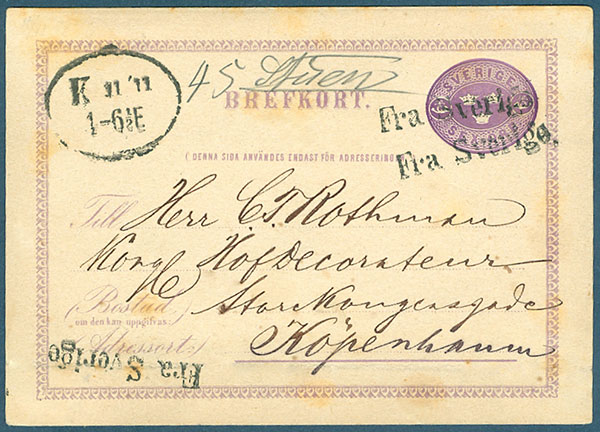 K 11 '11
1-6½E
45
BREFKORT.
SVERIGE
Fra Sverige
Fra Sverige.
( DENNA SIDA ANVÄNDES ENDAST FÖR ADRESSERING
Till Herr C. F. Rothman
Kongl HofDecorateur
(Bostad Store Kongensgade
om den kan uppgifvas.)
(Adressort) Köpenhamn
Fra Sverige